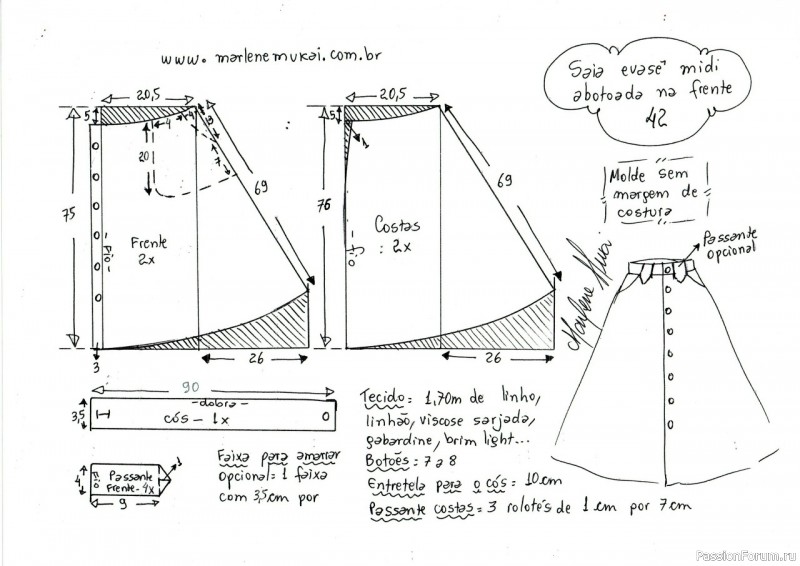 www.marlenemukai.com.br
Saia evasê midi
abotoada na frente
42
Molde sem
margem de
costura
Passante
opcional
20,5
5
4
4
3
20
7
75
69
Frente
2x
Fio
3
26
20,5
1
76
69
Costas
2x
Fio
26
Marlene Mukai
90
3,5
-dobra-
cós - 1x
4
Fio
Passante
Frente-4x
1
9
Faixa para amarrar
opcional = 1 faixa
com 3,5cm por
Tecido = 1,70m de linho,
linhão, viscose sarjada,
gabardine, brim light...
Botões = 7 a 8
Entretela para o cós = 10cm
Passante costas = 3 rolotés de 1cm por 7cm
PassionForum.ru